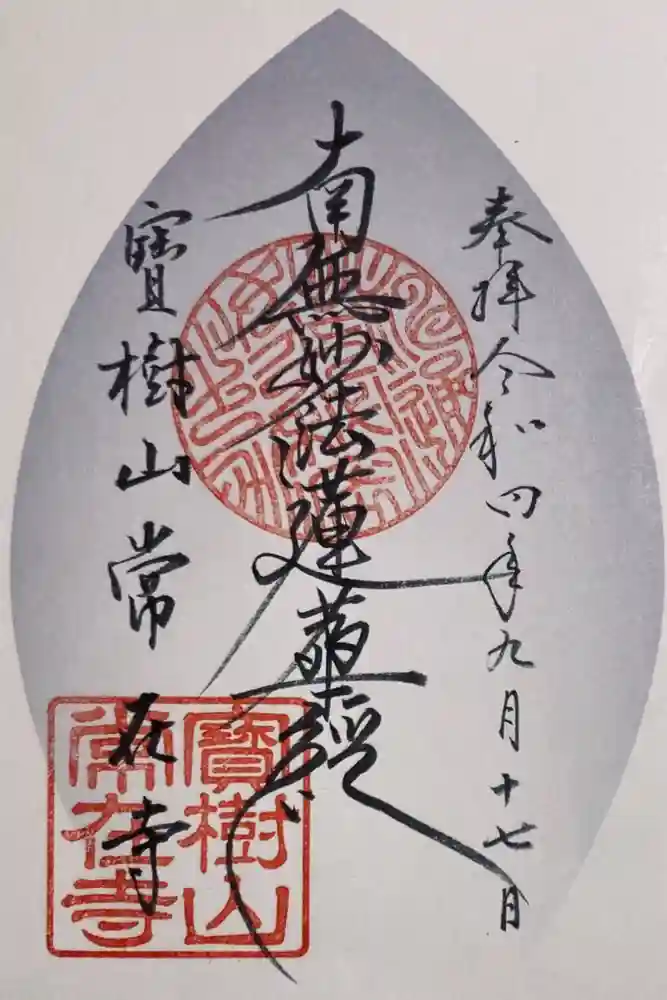 奉拝 令和四年九月十七日
南無妙法蓮華経
寶樹山常在寺
寶樹山
常在寺